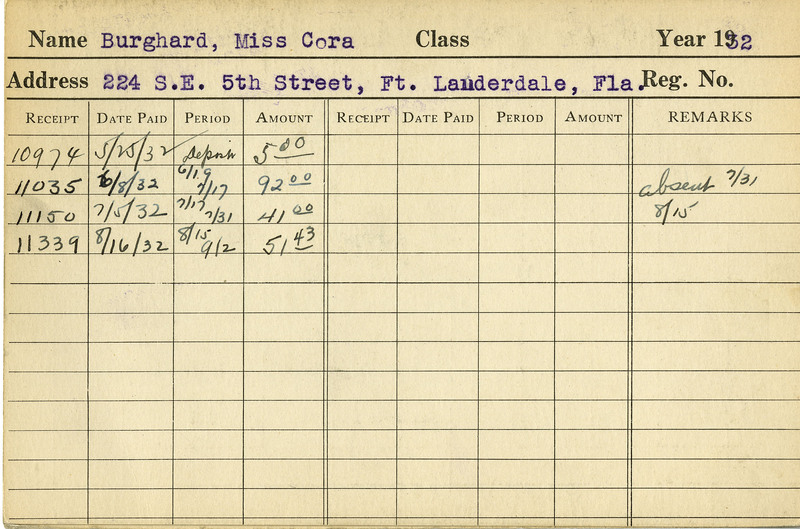 Name Burghard, Miss Cora Class Year 1932
Address 224 S.E. 5th Street, Ft. Lauderdale, Fla. Reg. No.
RECEIPT DATE PAID PERIOD AMOUNT RECEIPT DATE PAID PERIOD AMOUNT REMARKS
10974 5/25/32 Deposit 5 00
11035 6/8/32 6/19 7/17 92 00 absent 7/31
11150 7/5/32 7/17 7/31 41 00 8/15
11339 8/16/32 8/15 9/2 51 43